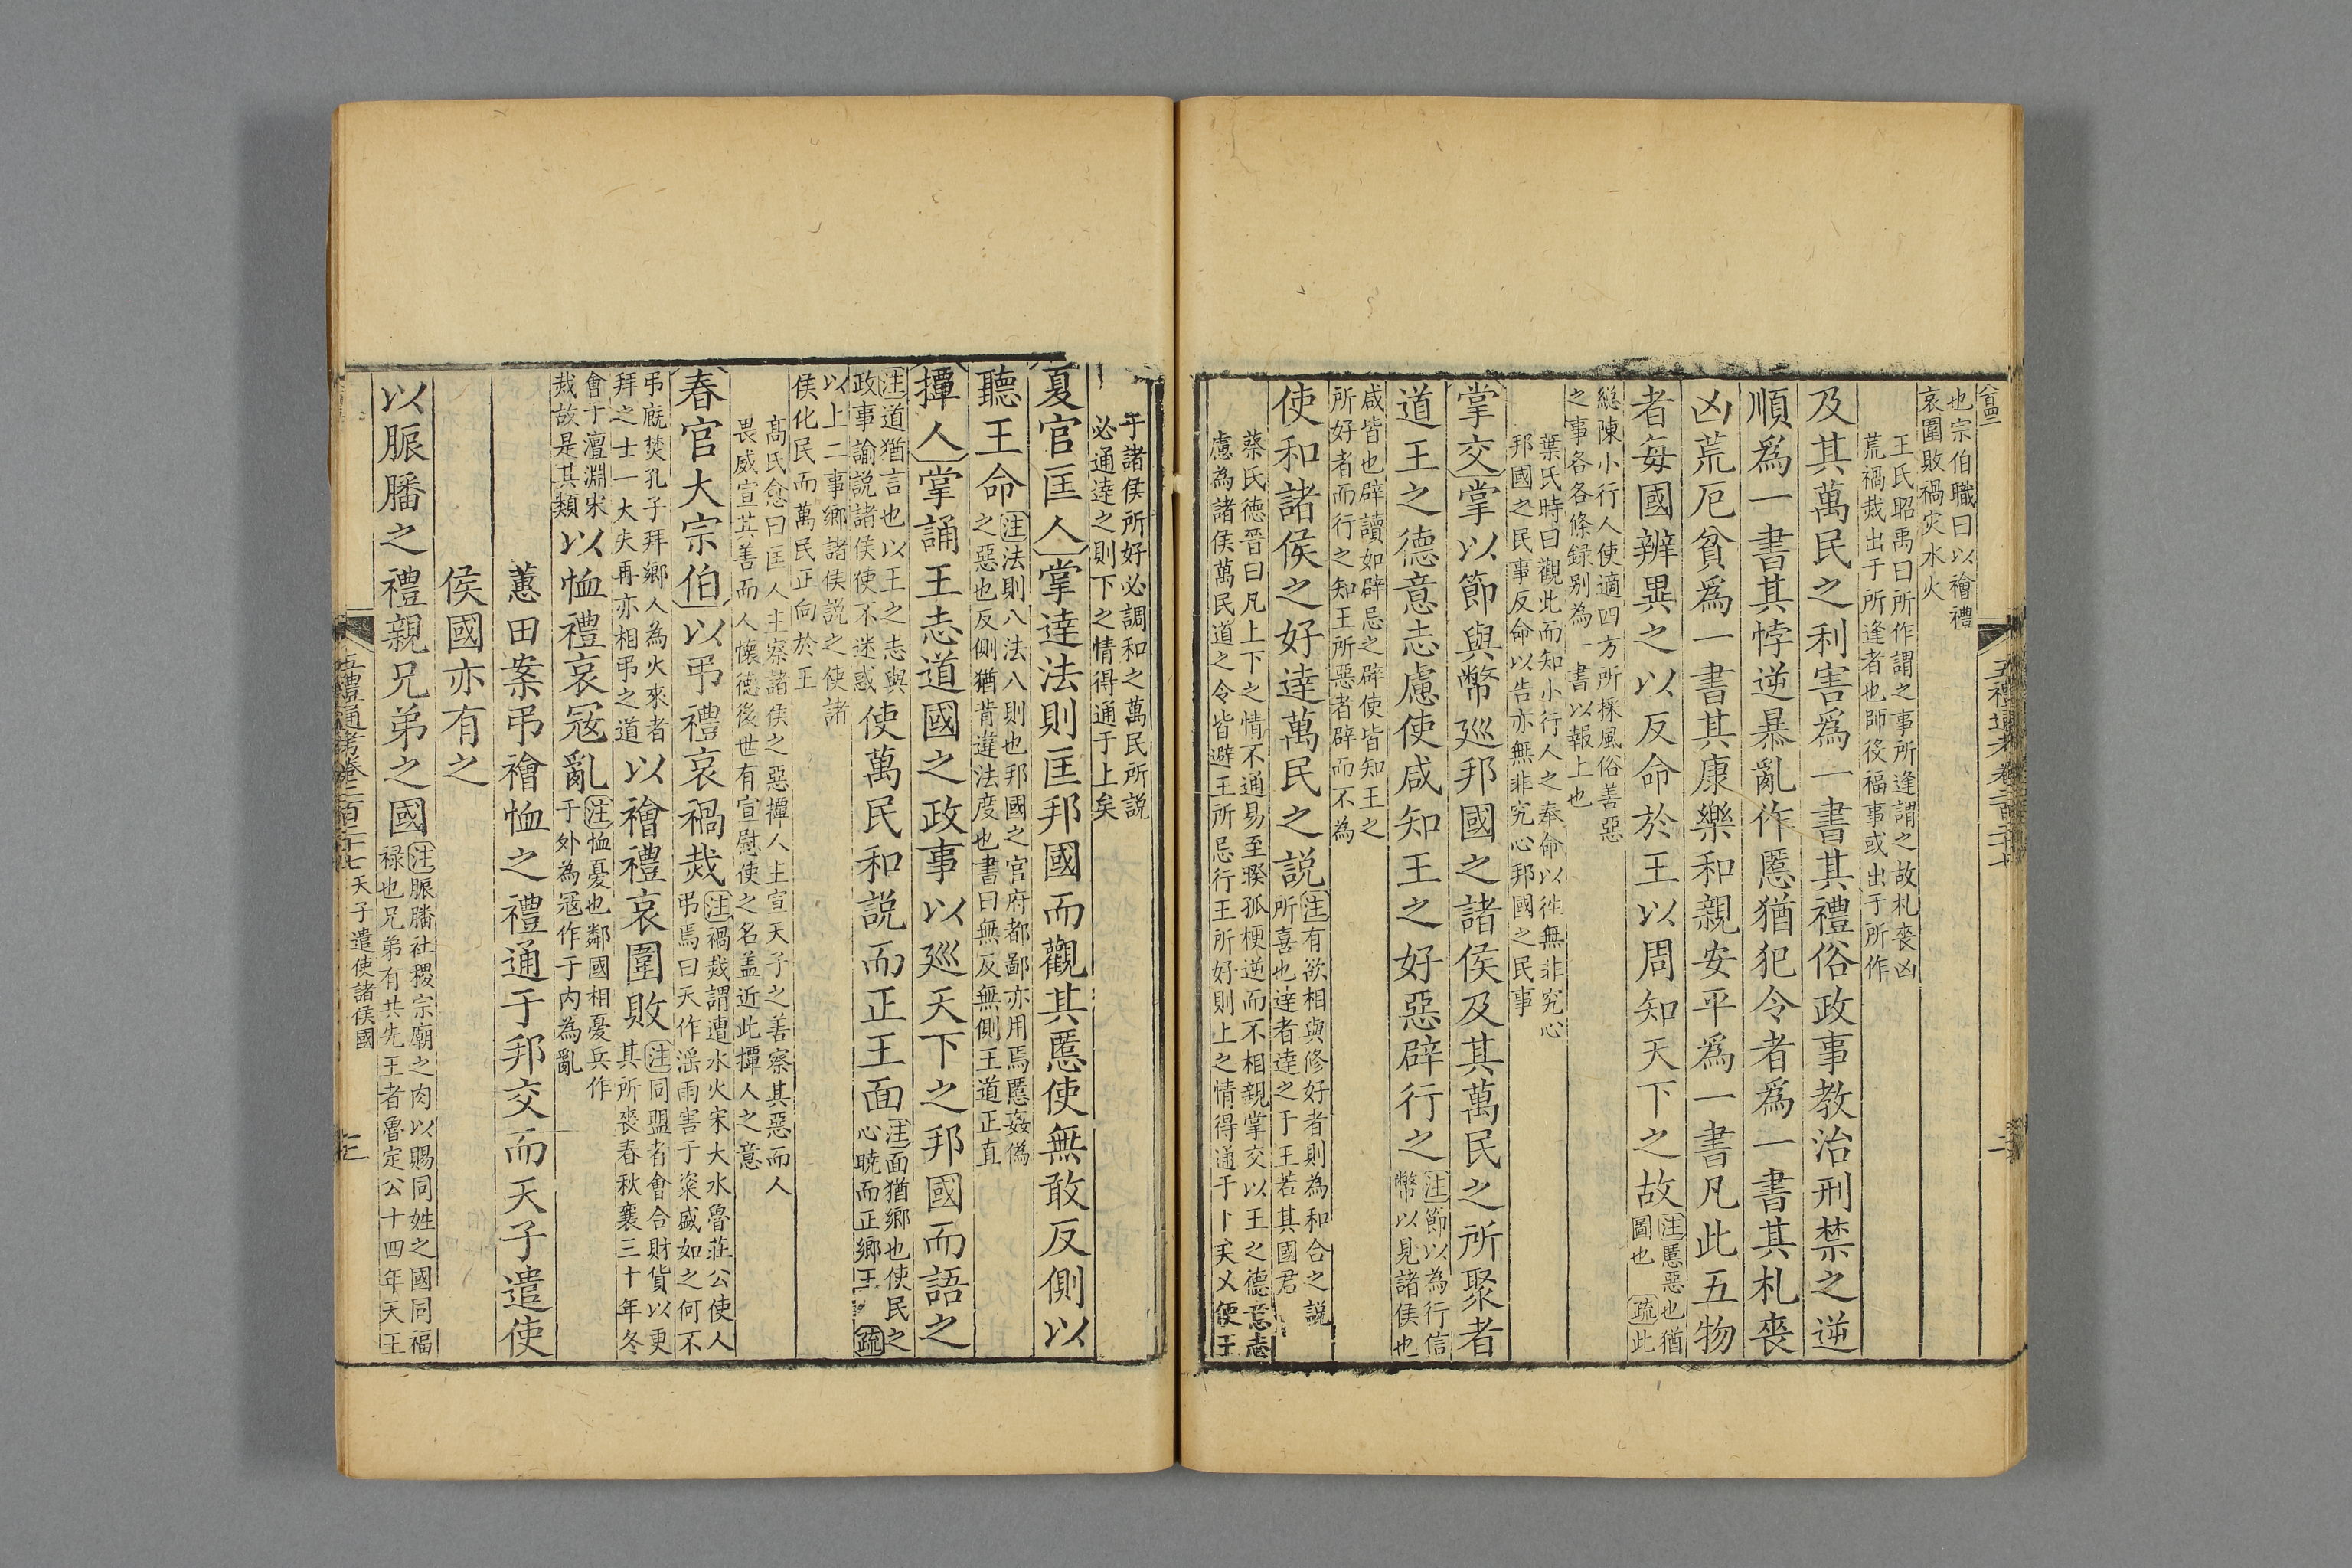 五禮通考卷二百二十七
也宗伯職曰以禬禮
哀圍敗禍灾水火
王氏昭禹曰所作謂之事所逢謂之故札喪凶
荒禍烖出于所逢者也師役福事或出于所作
及其萬民之利害爲一書其禮俗政事教治刑禁之逆
順爲一書其悖逆暴亂作慝猶犯令者爲一書其札喪
凶荒厄貧爲一書其康樂和親安平爲一書凡此五物
者每國辨異之以反命於王以周知天下之故
注慝惡也猶
圖也 疏此
緫陳小行人使適四方所採風俗善惡
之事各各條録别為一書以報上也
葉氏時曰觀此而知小行人之奉命以徃無非究心
邦國之民事反命以告亦無非究心邦國之民事
掌交掌以節與幣廵邦國之諸侯及其萬民之所聚者
道王之德意志慮使咸知王之好惡辟行之
注節以為行信
幣以見諸侯也
咸皆也辟讀如辟忌之辟使皆知王之
所好者而行之知王所惡者辟而不為
使和諸侯之好逹萬民之説
注有欲相與修好者則為和合之説
所喜也逹者逹之于王若其國君
蔡氏徳晉曰凡上下之情不通易至暌孤梗逆而不相親掌交以王之德意志
慮為諸侯萬民道之令皆避王所忌行王所好則上之情得通于下矣又使王
于諸侯所好必調和之萬民所説
必通逹之則下之情得通于上矣
夏官匡人掌逹法則匡邦國而觀其慝使無敢反側以
聽王命
注法則八法八則也邦國之官府都鄙亦用焉慝姦偽
之惡也反側猶背違法度也書曰無反無側王道正直
撢人掌誦王志道國之政事以廵天下之邦國而語之
注道猶言也以王之志與
政事諭説諸侯使不迷惑
使萬民和説而正王面
注面猶鄉也使民之
心曉而正鄉王 疏
以上二事鄉諸侯説之使諸
侯化民而萬民正向於王
髙氏愈曰匡人主察諸侯之惡撢人主宣天子之善察其惡而人
畏威宣其善而人懷德後世有宣慰使之名盖近此撢人之意
春官大宗伯以弔禮哀禍烖
注禍烖謂遭水火宋大水魯莊公使人
弔焉曰天作淫雨害于粢盛如之何不
弔廐焚孔子拜鄉人為火來者
拜之士一大夫再亦相弔之道
以禬禮哀圍敗
注同盟者會合財貨以更
其所喪春秋襄三十年冬
會于澶淵宋
烖故是其類
以恤禮哀冦亂
注恤憂也鄰國相憂兵作
于外為冦作于内為亂
蕙田案弔禬恤之禮通于邦交而天子遣使
侯國亦有之
以脤膰之禮親兄弟之國
注脤膰社稷宗廟之肉以賜同姓之國同福
禄也兄弟有共先王者魯定公十四年天王
五禮通考卷二百二十七 天子遣使諸侯國